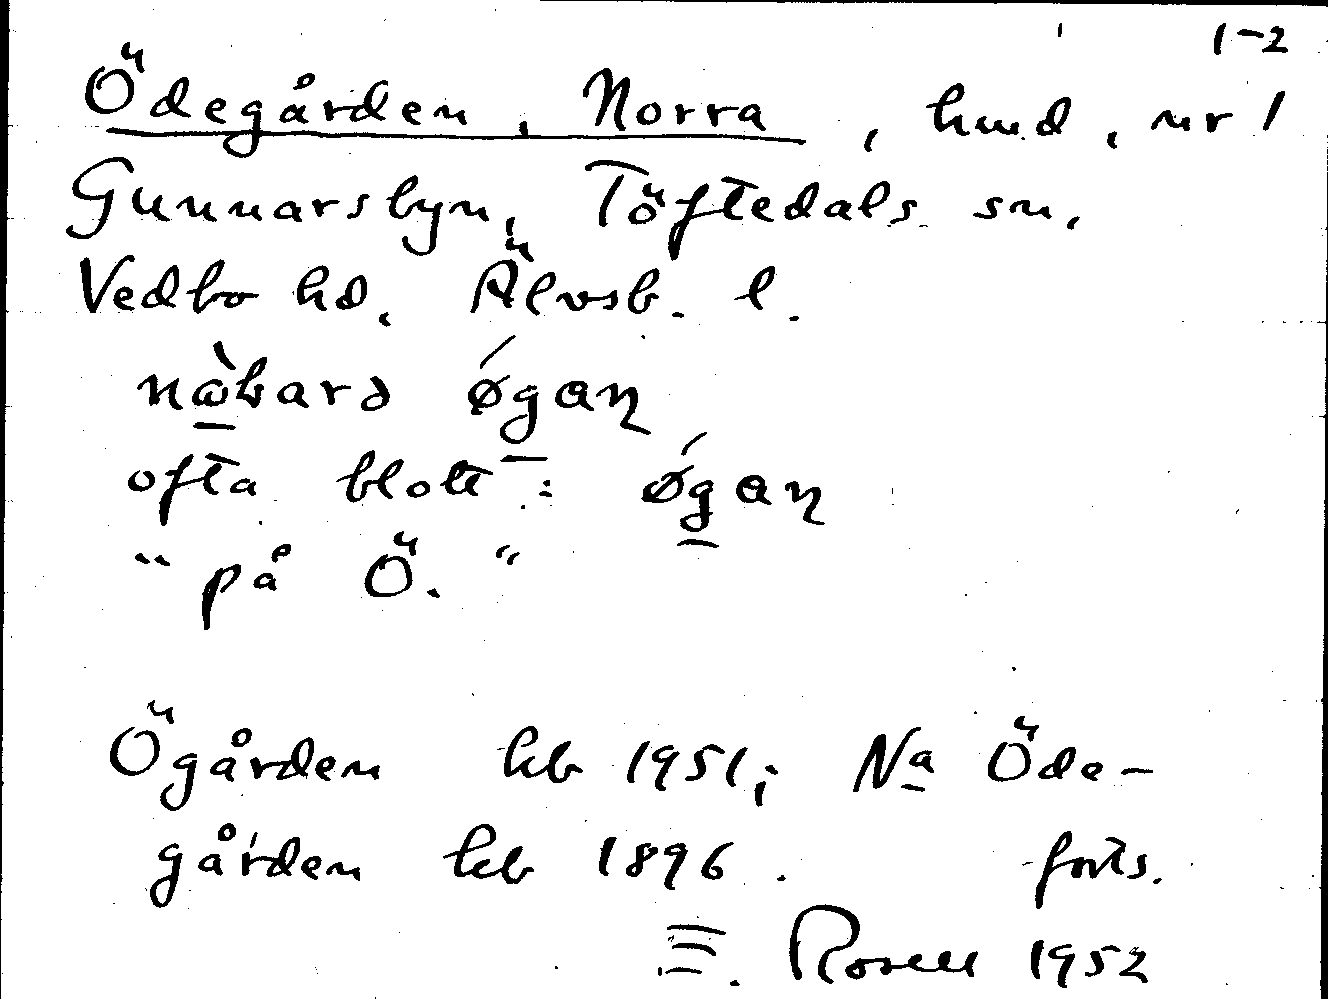 1-2
Ödegården, Norra, hmd, nr 1
Gunnarsbyn, Töftedals sn,
Vedbo hd, Älvsb. l.
ofta blott:
"på Ö."
Ögården kb 1951; Na Öde-
gården kb 1896. forts.
E. Rosell 1952